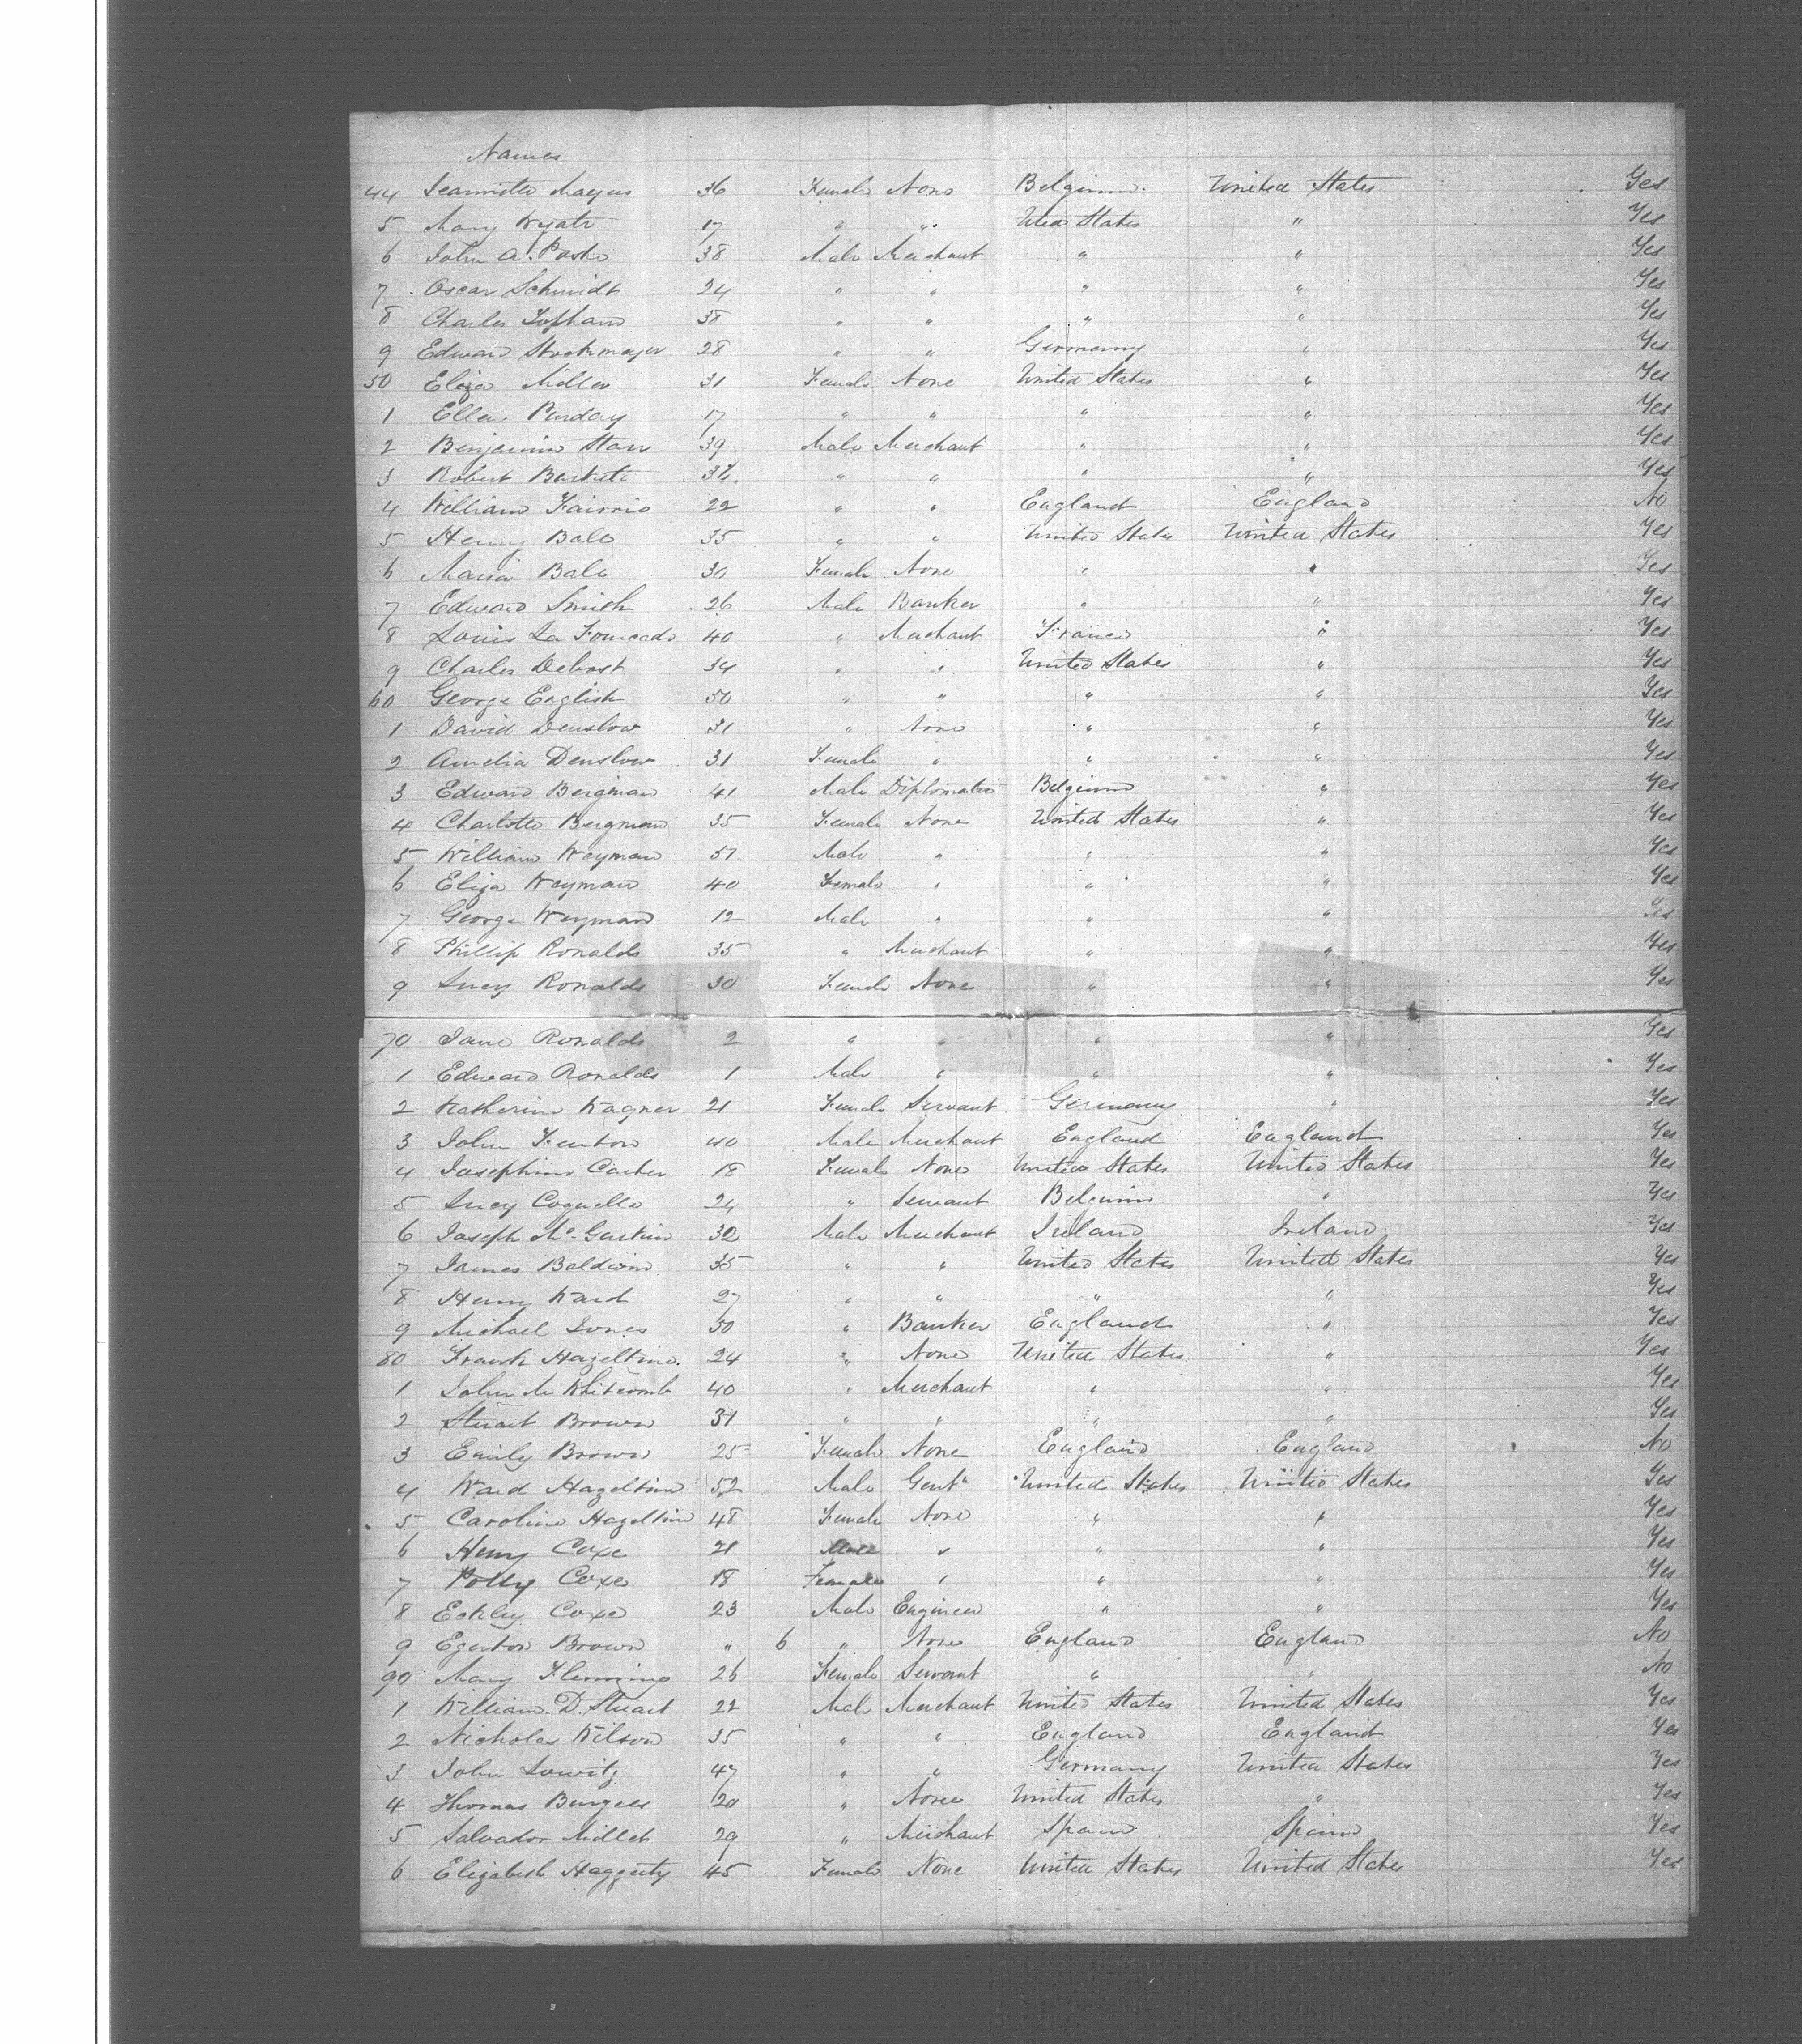 Names
44 Jeannette Mayus 36 Female None Belgium. United States Yes
5 Mary Wyatt 17 " " Uted States " Yes
6 John A. 38 Male Merchant " " Yes
7 Oscar Schmidt 24 " " " " Yes
8 Charles Topham 38 " " " " Yes
9 Edward Stockmayer 28 " " Germany " Yes
50 Eliza Miller 31 Female None United States " Yes
1 Ellen Purday 17 " " " " Yes
2 Benjamin Starr 39 Male Merchant " " Yes
3 Robert 34 " " " " Yes
4 William Fairrie 22 " " England England No
5 Henry Bale 35 " " United States United States Yes
6 Maria Bale 30 Female None " " Yes
7 Edward Smith 26 Male Banker " " Yes
8 Louis La 40 " Merchant France " Yes
9 Charles Debost 34 " " United States " Yes
60 George English 50 " " " " Yes
1 David Denslow 31 " None " " Yes
2 Amelia Denslow 31 Female " " " Yes
3 Edward Bergman 41 Male Diplomatic Belgium " Yes
4 Charlotte Bergman 35 Female None United States " Yes
5 William Weyman 51 Male " " " Yes
6 Eliza Weyman 40 Female " " " Yes
7 George Weyman 12 Male " " " Yes
8 Phillip Ronalds 35 " Merchant " " Yes
9 Lucy Ronalds 30 Female None " " Yes
70 Jane Ronalds 2 " " " " Yes
1 Edward Ronalds 1 Male " " " Yes
2 Katherine Wagner 21 Female Servant Germany " Yes
3 John Fenton 40 Male Merchant England England Yes
4 Josephine Carter 18 Female None United States United States Yes
5 Lucy Coquelle 24 " Servant Belgium " Yes
6 Joseph Mc Gartkin 32 Male Merchant Ireland Ireland Yes
7 James Baldwin 35 " " United States United States Yes
8 Henry Ward 27 " " " " Yes
9 Michael Jones 50 " Banker England " Yes
80 Frank Hazeltine. 24 " None United States " Yes
1 John M Whitcomb 40 " Merchant " " Yes
2 Stuart Brown 31 " " " " Yes
3 Emily Brown 25 Female None England England No
4 Ward Hazeltine 52 Male Gent United States United States Yes
5 Caroline Hazeltine 48 Female None " " Yes
6 Henry Coxe 21 Male " " " Yes
7 Polly Coxe 18 Female " " " Yes
8 Eckley Coxe 23 Male Engineer " " Yes
9 Egerton Brown " 6 " None England England No
90 Mary Fleming 26 Female Servant " " No
1 William D. Stuart 22 Male Merchant United States United States Yes
2 Nicholas Wilson 35 " " England England Yes
3 John Lowitz 47 " " Germany United States Yes
4 Thomas Burgess 20 " None United States " Yes
5 Salvador Millet 29 " Merchant Spain Spain Yes
6 Elizabeth Haggerty 45 Female None United States United States Yes